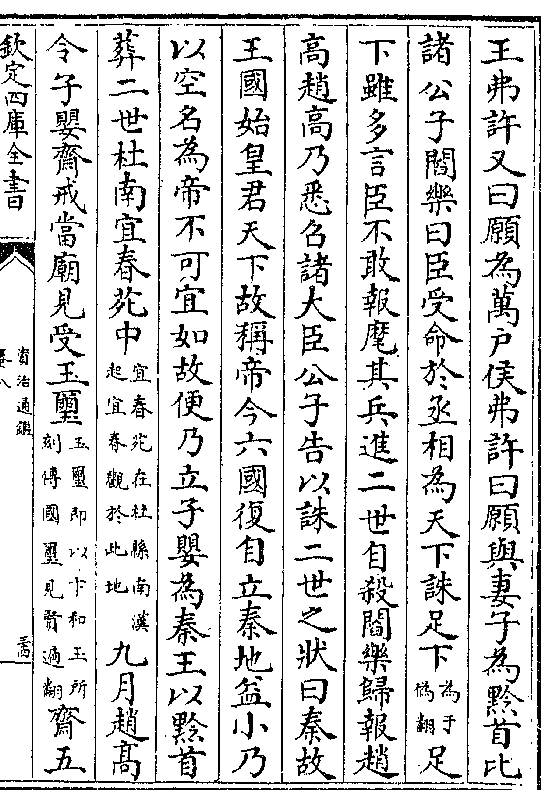 王弗許又曰願為萬户侯弗許曰願與妻子為黔首比
諸公子閻樂曰臣受命於丞相為天下誅足下為于偽翻足
下雖多言臣不敢報麾其兵進二世自殺閻樂歸報趙
高趙高乃悉召諸大臣公子告以誅二世之狀曰秦故
王國始皇君天下故稱帝今六國復自立秦地益小乃
以空名為帝不可宜如故便乃立子嬰為秦王以黔首
葬二世杜南宜春苑中宜春苑在杜縣南漢起宜春觀於此地九月趙高
令子嬰齋戒當廟見受玉璽玉璽即以卞和玉所刻傳國璽見賢遍翻齋五
欽定四庫全書
資治通鑑
卷八